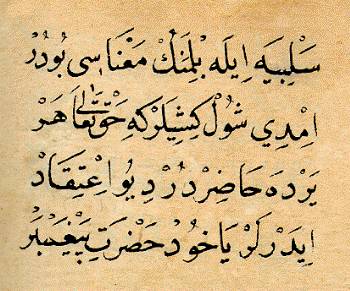 سَلْبِيَه اِيلَه بِلْمَنِكْ مَعْنَاسِى بُودُرْ
اِمْدِي شُولْ كِشِيلَرْكِه حَقْ تَعَالَى هَرْ
يَرْدَه حَاضِرْدُرْ دِيُو اِعْتِقَادْ
اِيدَرْلَرْ يَاخُودْ حَضْرَتِ پَيْغَمْبَرْ